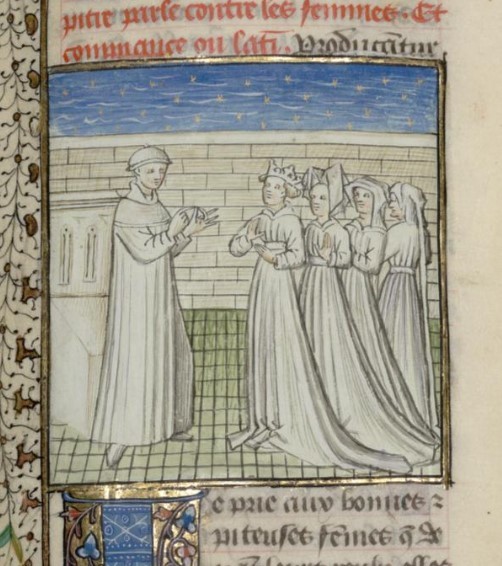 pitre parle contre les femmes. Et
commence ou latī. Producantur
e prie aux bonnes z
piteuses fēmes q̄ de